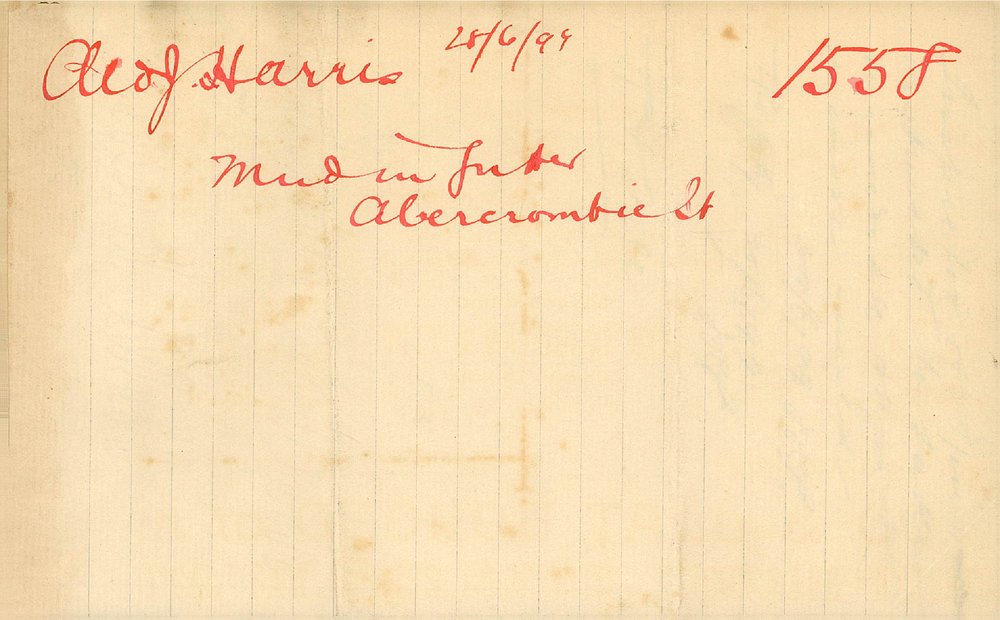 Ald J. Harris 28/6/99 1558
Mud in Gutter
Abercrombie St